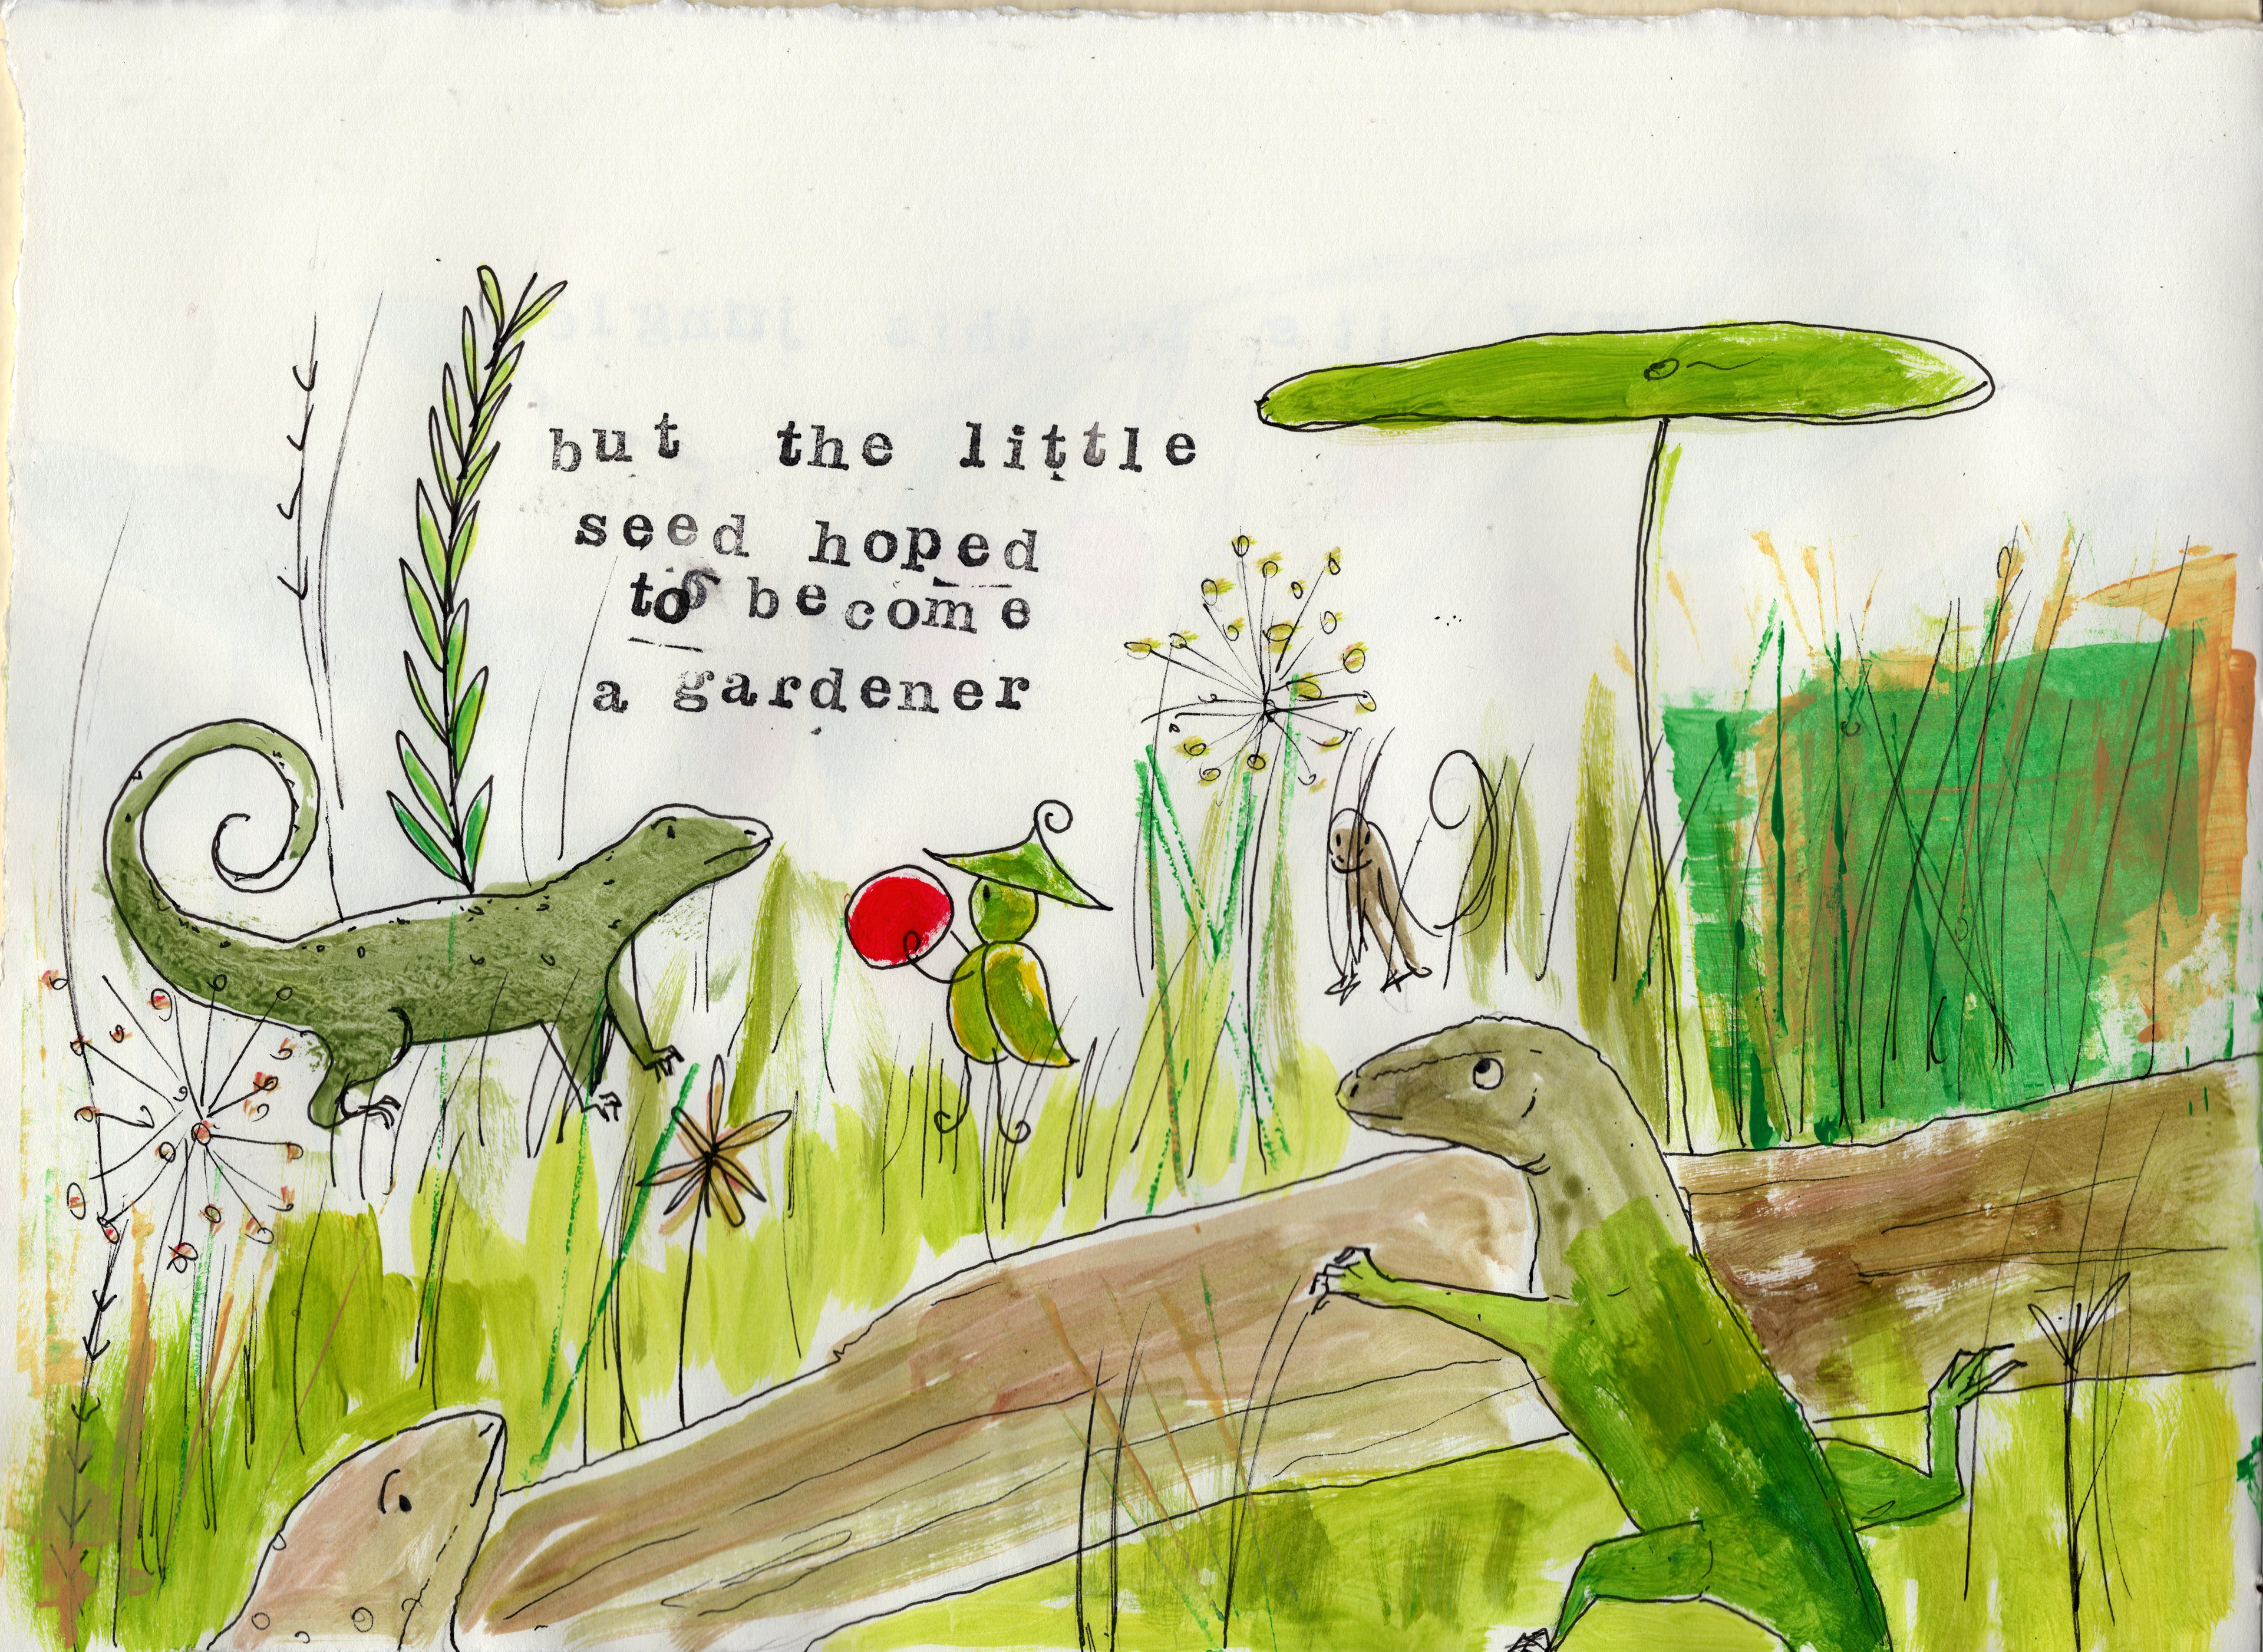 but the little
seed hoped
to become
a gardener